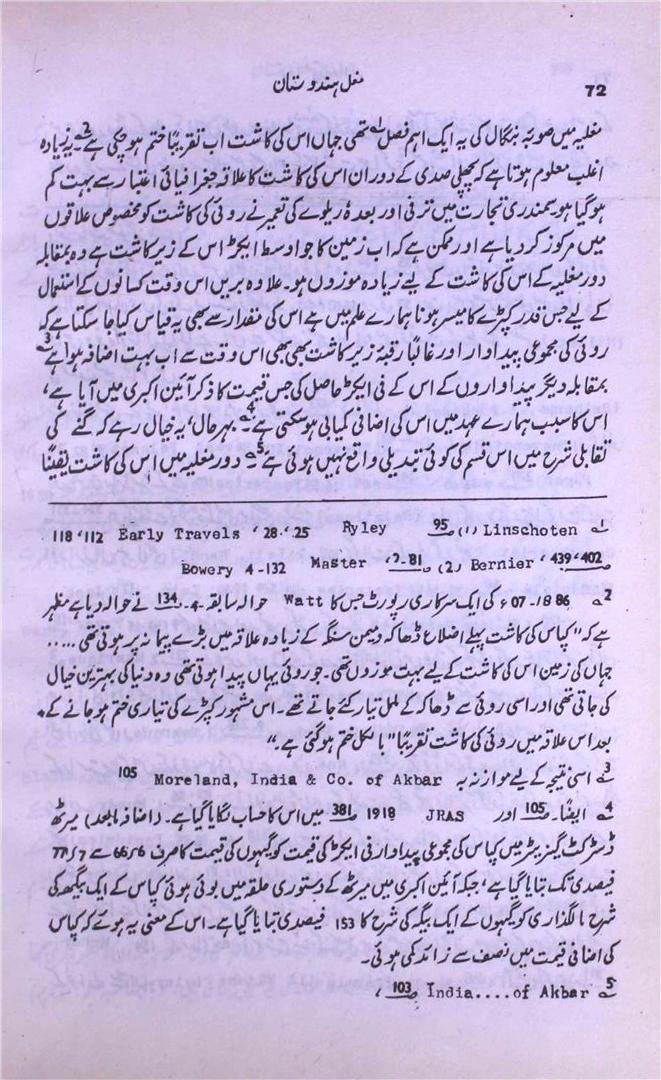 72
مغل ہندوستان
مغلیہ میں صوبۂ بنگال کی یہ ایک اہم فصل1 تھی جہاں اس کی کاشت اب تقریباً ختم ہو چکی ہے2۔ یہ زیادہ
اغلب معلوم ہوتا ہے کہ پچھلی صدی کے دوران اس کی کاشت کا علاقہ جغرافیائی اعتبار سے بہت کم
ہو گیا ہو۔ سمندری تجارت میں ترقی اور بعدہٗ ریلوے کی تعمیر نے روئی کی کاشت کو مخصوص علاقوں
میں مرکوز کر دیا ہے اور ممکن ہے کہ اب زمین کا جو اوسط ایکڑ اس کے زیر کاشت ہے وہ بمقابلہ
دور مغلیہ کے اس کی کاشت کے لیے زیادہ موزوں ہو۔ علاوہ بریں اس وقت کسانوں کے استعمال
کے لیے جس قدر کپڑے کا میسر ہونا ہمارے علم میں ہے اس کی مقدار سے بھی یہ قیاس کیا جا سکتا ہے کہ
روئی کی مجموعی پیداوار اور غالباً رقبۂ زیر کاشت بھی اس وقت سے اب بہت اضافہ ہوا ہے3
بمقابلہ دیگر پیداواروں کے اس کے فی ایکڑ حاصل کی جس قیمت کا ذکر آئین اکبری میں آیا ہے،
اس کا سبب ہمارے عہد میں اس کی اضافی کمیابی ہو سکتی ہے4۔ بہرحال، یہ خیال رہے کہ گنے کی
تقابلی شرح میں اس قسم کی کوئی تبدیلی واقع نہیں ہوئی ہے5۔ دور مغلیہ میں اس کی کاشت یقیناً
1 Linschoten (1)، 95 Ryley 25، 28، Early Travels 112، 118
402، 439، Bernier (2)، 81-2، Master Bowery 4-132
2 1886-07ء کی ایک سرکاری رپورٹ جس کا Watt حوالہ سابقہ 4-134 نے حوالہ دیا ہے مظہر
ہے کہ "کپاس کی کاشت پہلے اضلاع ڈھاکہ و میمن سنگھ کے زیادہ علاقہ میں بڑے پیمانہ پر ہوتی تھی.....
جہاں کی زمین اس کی کاشت کے لیے بہت موزوں تھی۔ جو روئی یہاں پیدا ہوتی تھی وہ دنیا کی بہترین خیال
کی جاتی تھی اور اسی روئی سے ڈھاکہ کے ململ تیار کئے جاتے تھے۔ اس مشہور کپڑے کی تیاری ختم ہو جانے کے
بعد اس علاقہ میں روئی کی کاشت تقریباً "بالکل ختم ہو گئی ہے۔"
3 اسی نتیجہ کے لیے موازنہ بہ Moreland, India & Co. of Akbar 105
4 ایضاً۔ 105 اور JRAS 1918 381 میں اس کا حساب لگایا گیا ہے۔ (اضافہ مابعد) میرٹھ
ڈسٹرکٹ گیزیٹر میں کپاس کی مجموعی پیداوار فی ایکڑ کی قیمت کو گیہوں کی قیمت کا صرف 66/6 سے 77/7
فیصدی تک بتایا گیا ہے، جبکہ آئین اکبری میں میرٹھ کے دستوری حلقہ میں بوئی ہوئی کپاس کے ایک بیگھ کی
شرح مالگذاری کو گیہوں کے ایک بیگہ کی شرح کا 153 فیصدی بتایا گیا ہے۔ اس کے معنی یہ ہوئے کہ کپاس
کی اضافی قیمت میں نصف سے زائد کمی ہوئی۔
5 India....of Akbar 103،